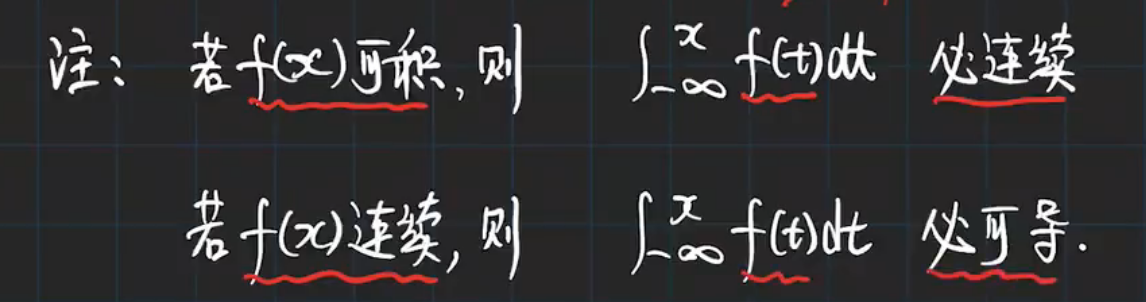 注： 若f(x)可积，则 ∫_{-∞}^{x} f(t)dt 必连续
若f(x)连续，则 ∫_{-∞}^{x} f(t)dt 必可导.